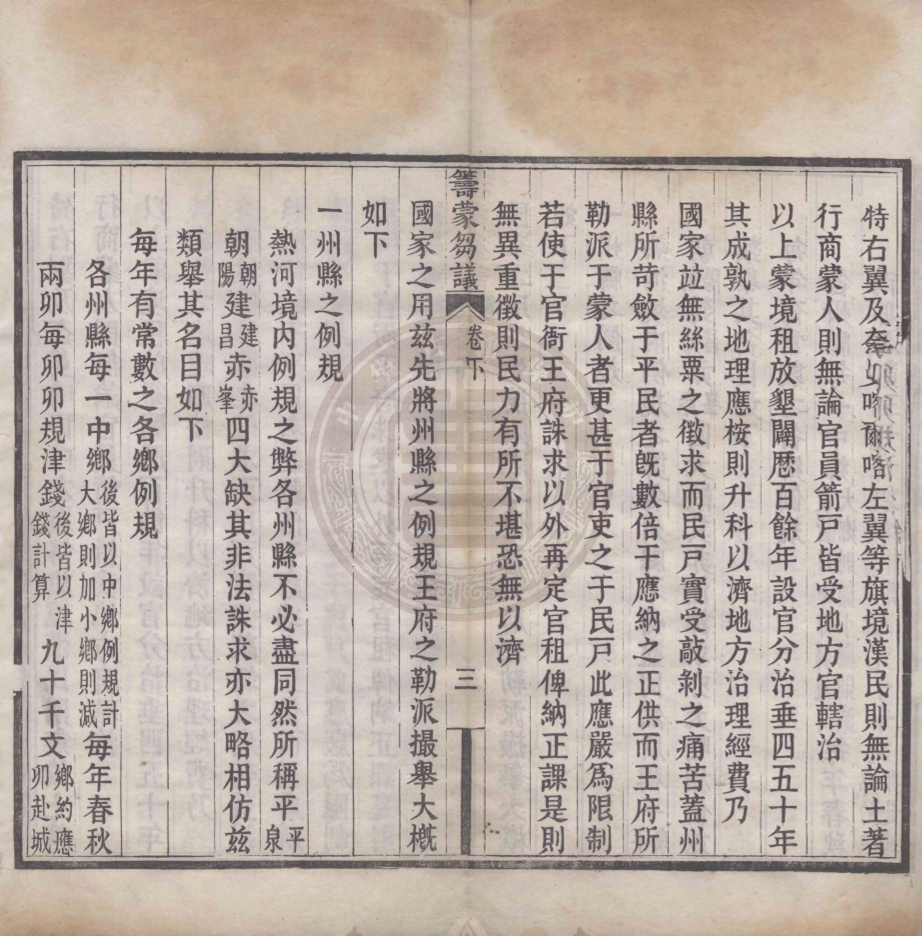 特右翼及奈曼喀爾喀左翼等旗境漢民則無論土著
行商蒙人則無論官員箭戸皆受地方官轄治
以上蒙境租放墾闢歷百餘年設官分治垂四五十年
其成孰之地理應桉則升科以濟地方治理經費乃
國家竝無絲粟之徵求而民戸實受敲剝之痛苦蓋州
縣所苛斂于平民者旣數倍于應納之正供而王府所
勒派于蒙人者更甚于官吏之于民戸此應嚴爲限制
若使于官衙王府誅求以外再定官租俾納正課是則
無異重徵則民力有所不堪恐無以濟
籌蒙芻議 卷下 三
國家之用兹先將州縣之例規王府之勒派撮舉大槪
如下
一州縣之例規
熱河境內例規之弊各州縣不必盡同然所稱平平泉
朝朝陽建建昌赤赤峯四大缺其非法誅求亦大略相仿兹
類舉其名目如下
每年有常數之各鄉例規
各州縣每一中鄉後皆以中鄉例規計大鄉則加小鄉則減每年春秋
兩卯每卯卯規津錢後皆以津錢計算九十千文鄉約應卯赴城